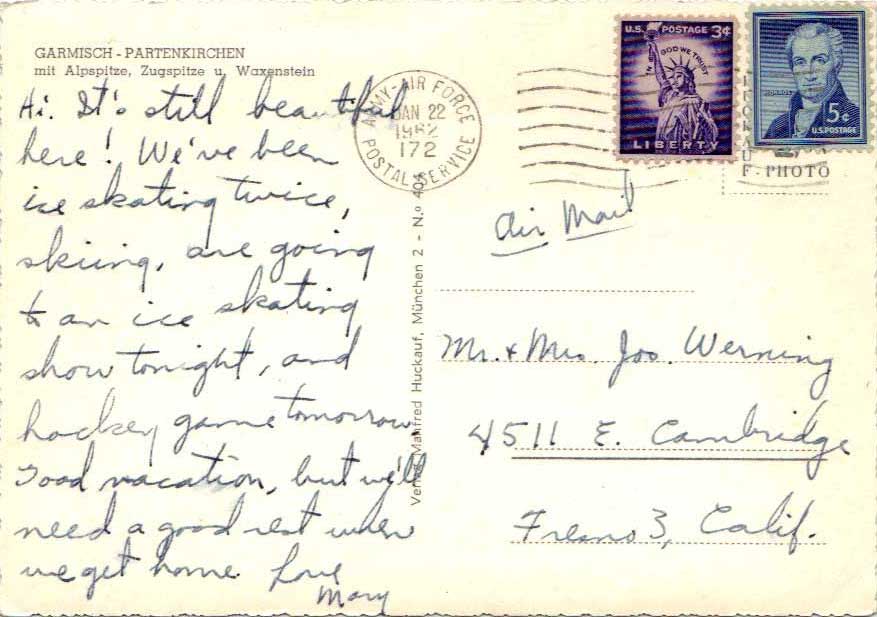 GARMISCH - PARTENKIRCHEN
mit Alpspitze, Zugspitze u. Waxenstein
Hi. It's still beautiful
here! We've been
ice skating twice,
skiing, are going
to an ice skating
show tonight, and
hockey game tomorrow.
Good vacation, but we'll
need a good rest when
we get home. Love
Mary
ARMY-AIR FORCE
JAN 22
1962
172
POSTAL SERVICE
U.S. POSTAGE 3¢
IN GOD WE TRUST
LIBERTY
MONROE
5¢
U.S. POSTAGE
F-PHOTO
Air Mail
Verlag Manfred Huckauf, München 2 - N.o 404
Mr. & Mrs. Jos. Werning
4511 E. Cambridge
Fresno 3, Calif.